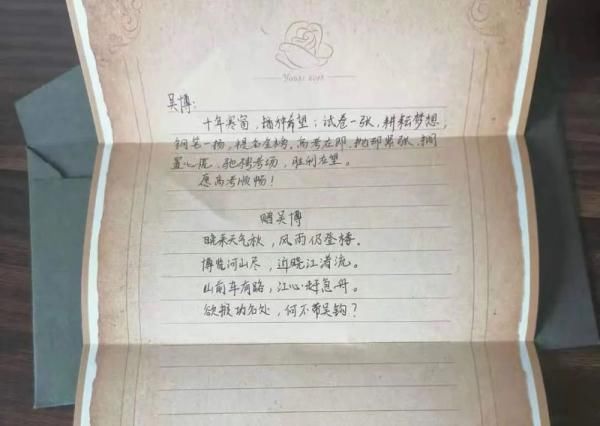 吴博：
十年寒窗，播种希望；试卷一张，耕耘梦想，
钢笔一扬，提名金榜，高考在即，抛却紧张，搁
置心慌，驰骋考场，胜利在望。
愿高考顺畅！
赠吴博
晚来天气秋，风雨仍登楼。
博览河山尽，近晓江渚流。
山前车有路，江心赶急舟。
欲报功名处，何不带吴钩？